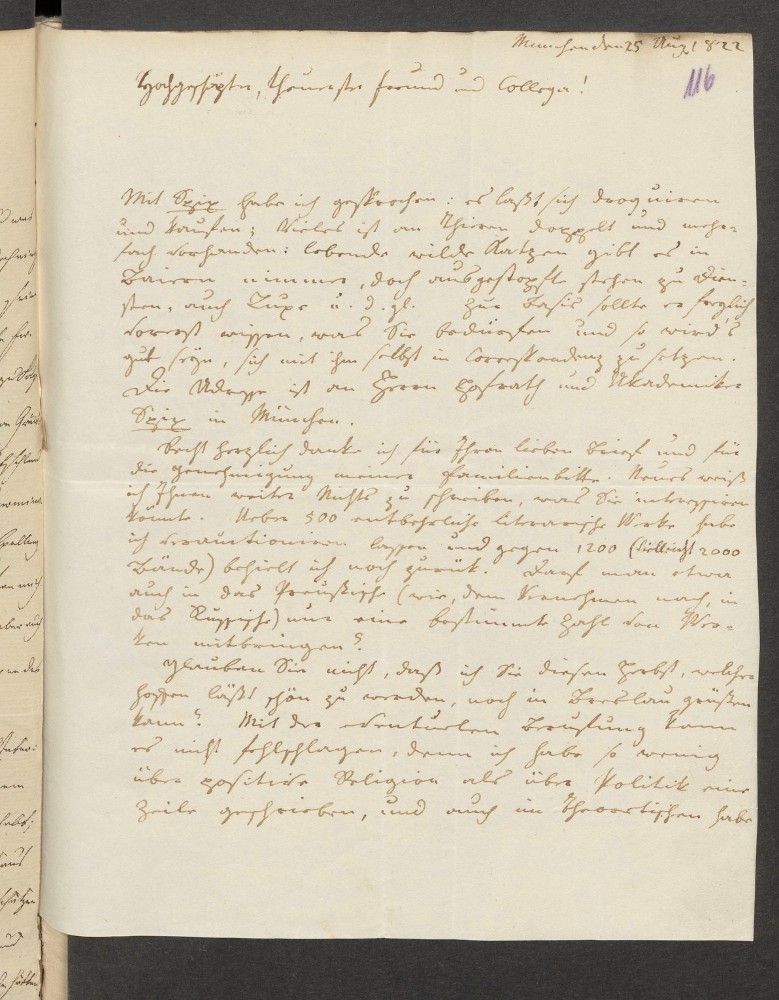 München den 25 Aug. 1822
116
Hochgeschätzter, theuerster Freund und Collega!
Mit Spix habe ich gesprochen: es laßt sich acquiriren
und kaufen; Vieles ist an Thieren doppelt und mehr-
fach vorhanden: lebende wilde Katzen gibt es in
Baiern nimmer, doch ausgestopfte stehen zu Dien-
sten, auch Luxe u. d. gl. Zur Basis sollte er freylich
vorerst wissen, was Sie bedürfen und so wird's
gut seyn, sich mit ihm selbst in Correspondenz zu setzen.
Die Adresse ist an Herrn Hofrath und Akademiker
Spix in München.
Recht herzlich danke ich für Ihren lieben Brief und für
die Genehmigung meiner Familienbitte. Neues weiß
ich Ihnen weiter Nichts zu schreiben, was Sie interessiren
könnte. Ueber 500 entbehrliche literarische Werke habe
ich verauctioniren lassen und gegen 1200 (vielleicht 2000
Bände) behielt ich noch zurük. Darf man etwa
auch in das Preußische (wie, dem Vernehmen nach, in
das Russische) nur eine bestimmte Zahl von Wer-
ken mitbringen?
Glauben Sie nicht, daß ich Sie diesen Herbst, welcher
hoffen läßt schön zu werden, noch in Breslau grüßen
kann? Mit der eventuelen Berufung kann
es nicht fehlschlagen, denn ich habe so wenig
über positive Religion als über Politik eine
Zeile geschrieben, und auch im Theoretischen habe